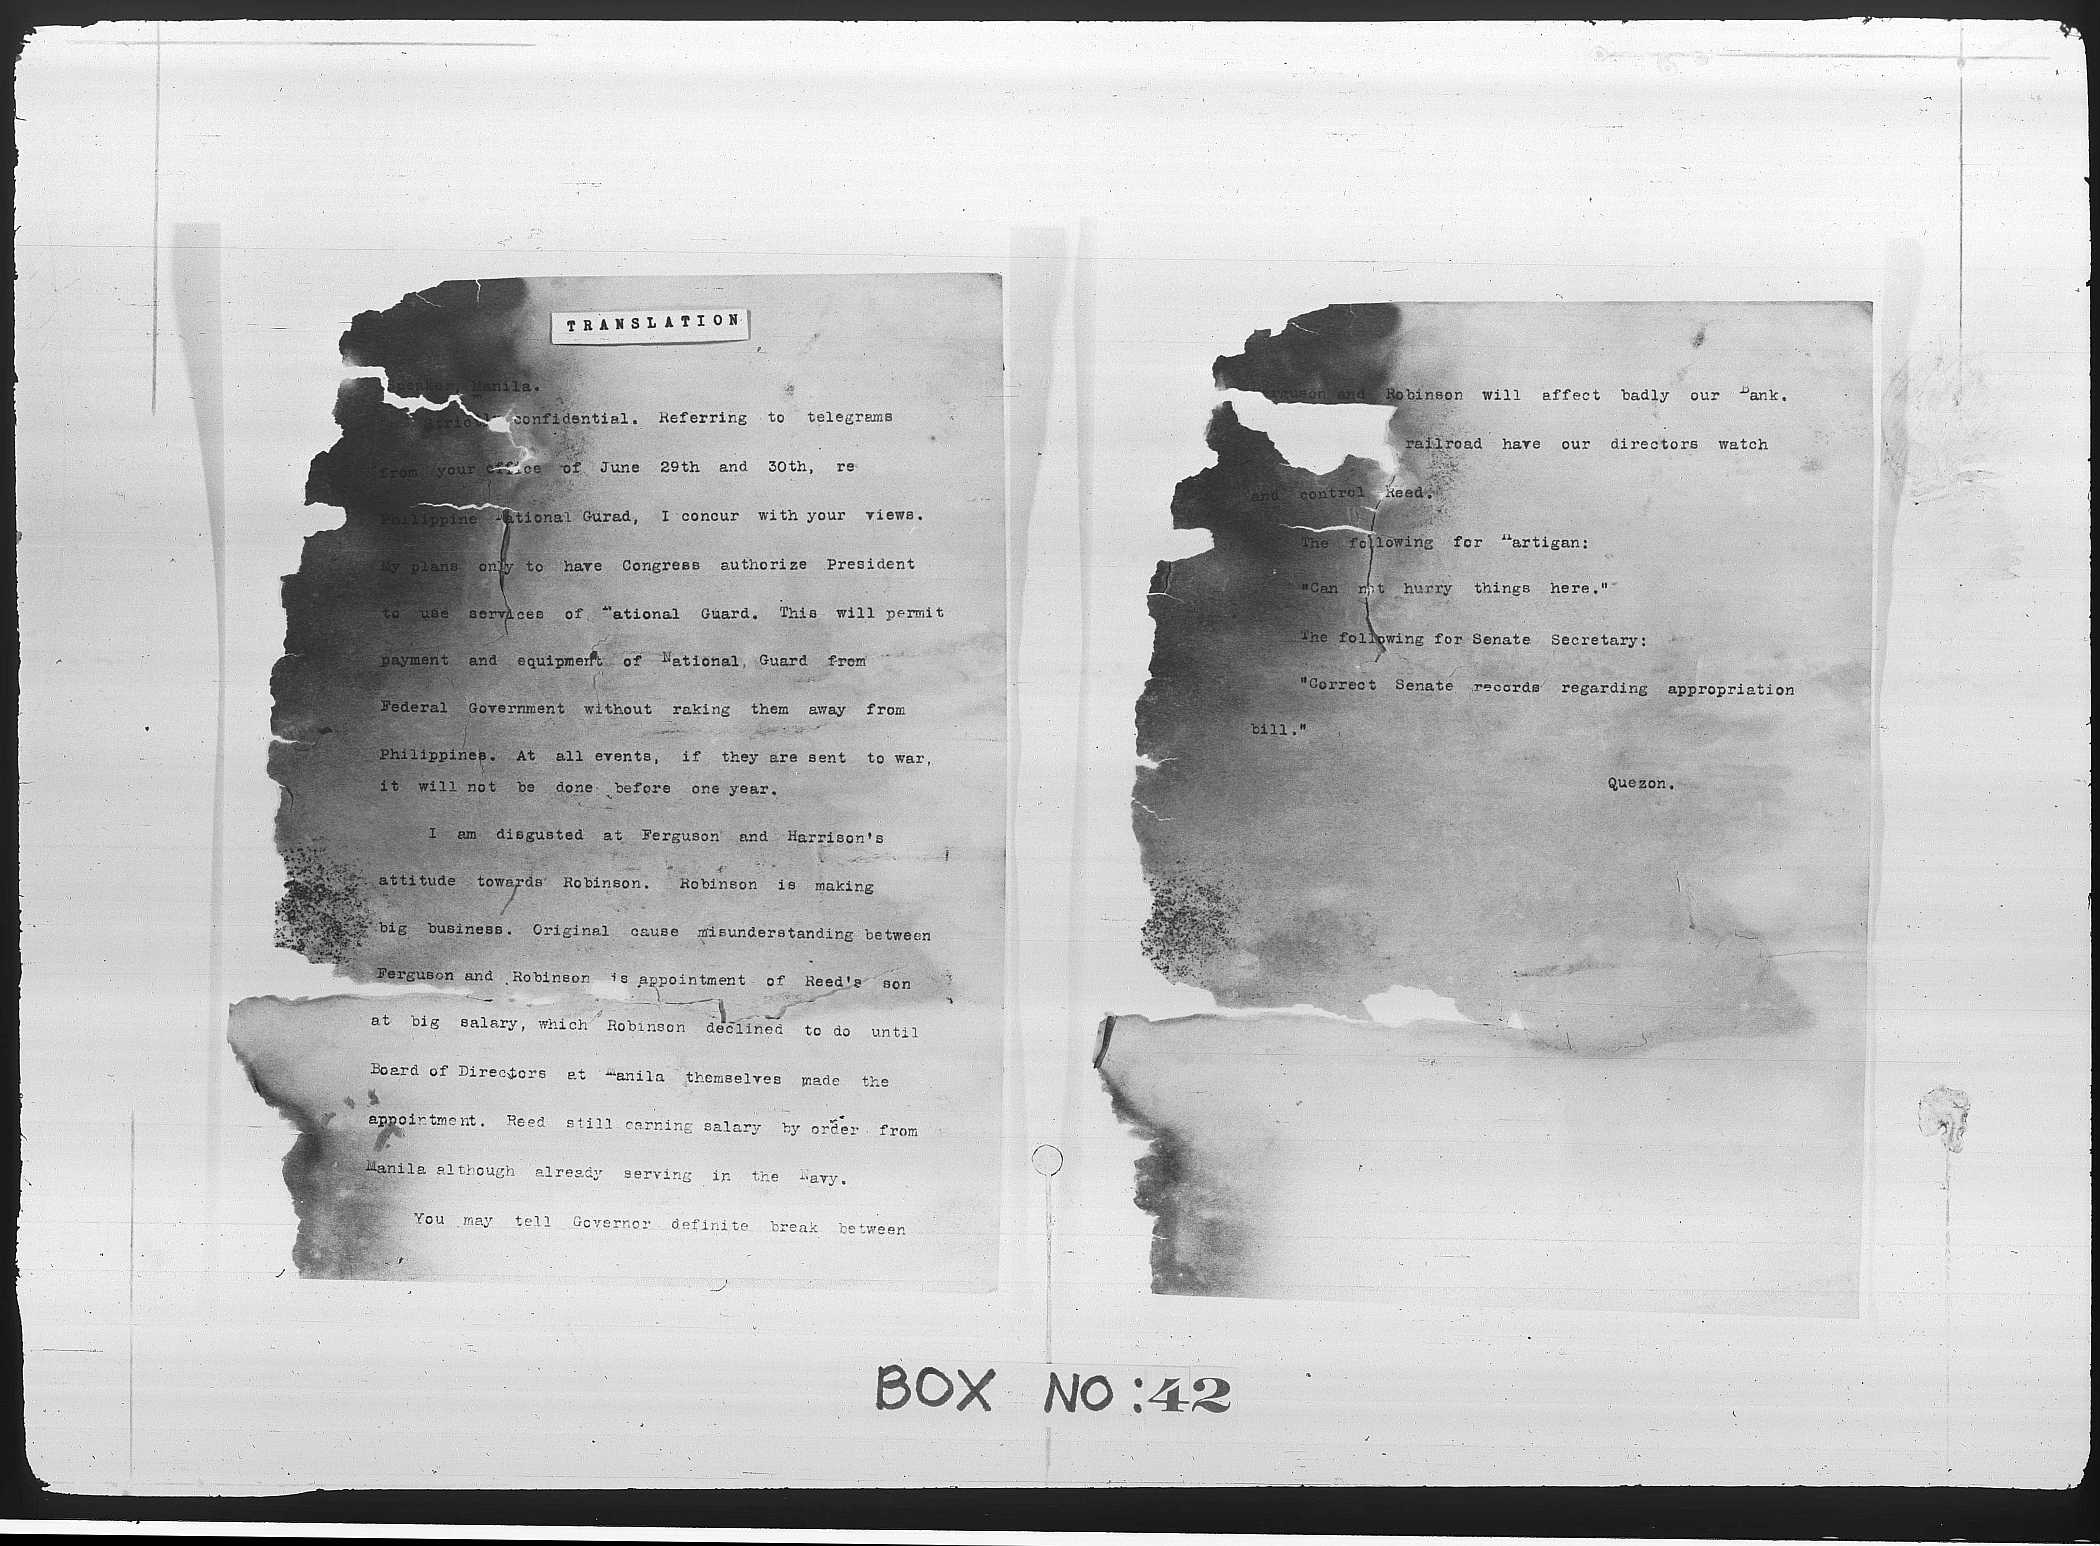 TRANSLATION
Speaker, Manila.
Strictly confidential. Referring to telegrams
from your office of June 29th and 30th, re
Philippine National Gurad, I concur with your views.
My plans only to have Congress authorize President
to use services of National Guard. This will permit
payment and equipment of National Guard from
Federal Government without raking them away from
Philippines. At all events, if they are sent to war,
it will not be done before one year.
I am disgusted at Ferguson and Harrison's
attitude towards Robinson. Robinson is making
big business. Original cause misunderstanding between
Ferguson and Robinson is appointment of Reed's son
at big salary, which Robinson declined to do until
Board of Directors at Manila themselves made the
appointment. Reed still earning salary by order from
Manila although already serving in the Navy.
You may tell Governor definite break between
Ferguson and Robinson will affect badly our Bank.
railroad have our directors watch
and control Reed.
The following for Hartigan:
"Can not hurry things here."
The following for Senate Secretary:
"Correct Senate records regarding appropriation
bill."
Quezon.
BOX NO:42